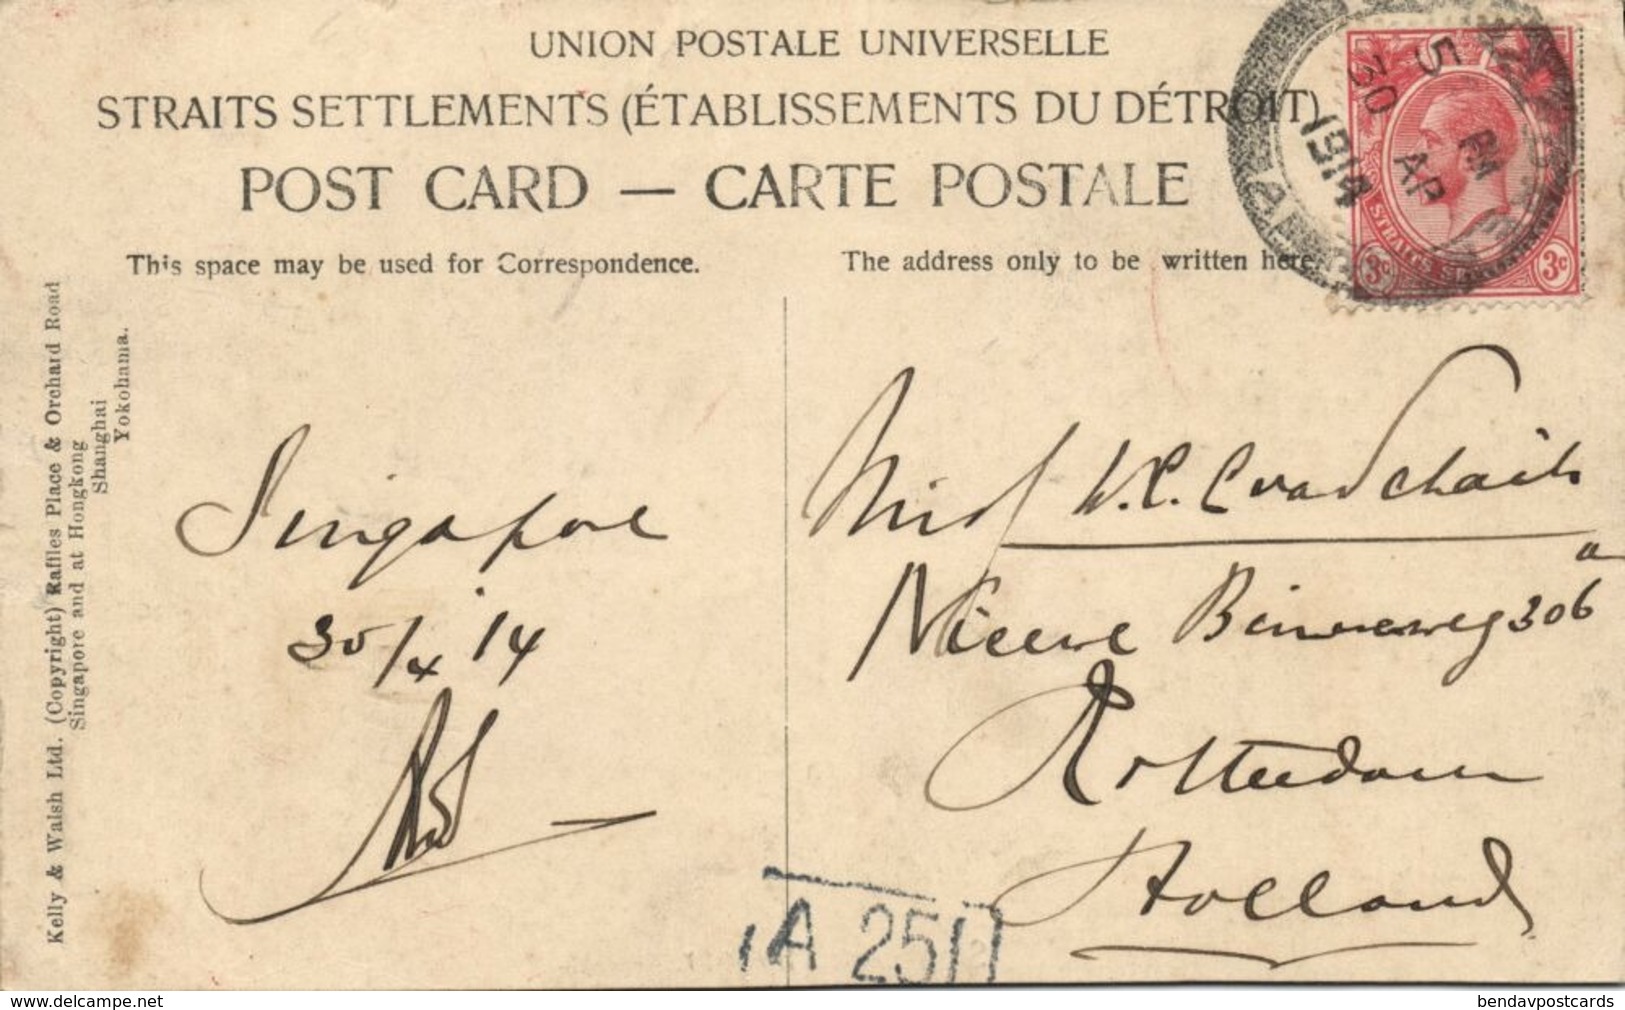 UNION POSTALE UNIVERSELLE
STRAITS SETTLEMENTS (ÉTABLISSEMENTS DU DÉTROIT)
POST CARD — CARTE POSTALE
This space may be used for Correspondence.
The address only to be written here.
5 PM
30 AP
1914
STRAITS SE
3c 3c
Kelly & Walsh Ltd. (Copyright) Raffles Place & Orchard Road
Singapore and at Hongkong
Shanghai
Yokohama.
Singapore
30/4 '14
W.C.
Nieuwe Binnenweg 306 a
Rotterdam
Holland
A 25
www.delcampe.net
bendavpostcards